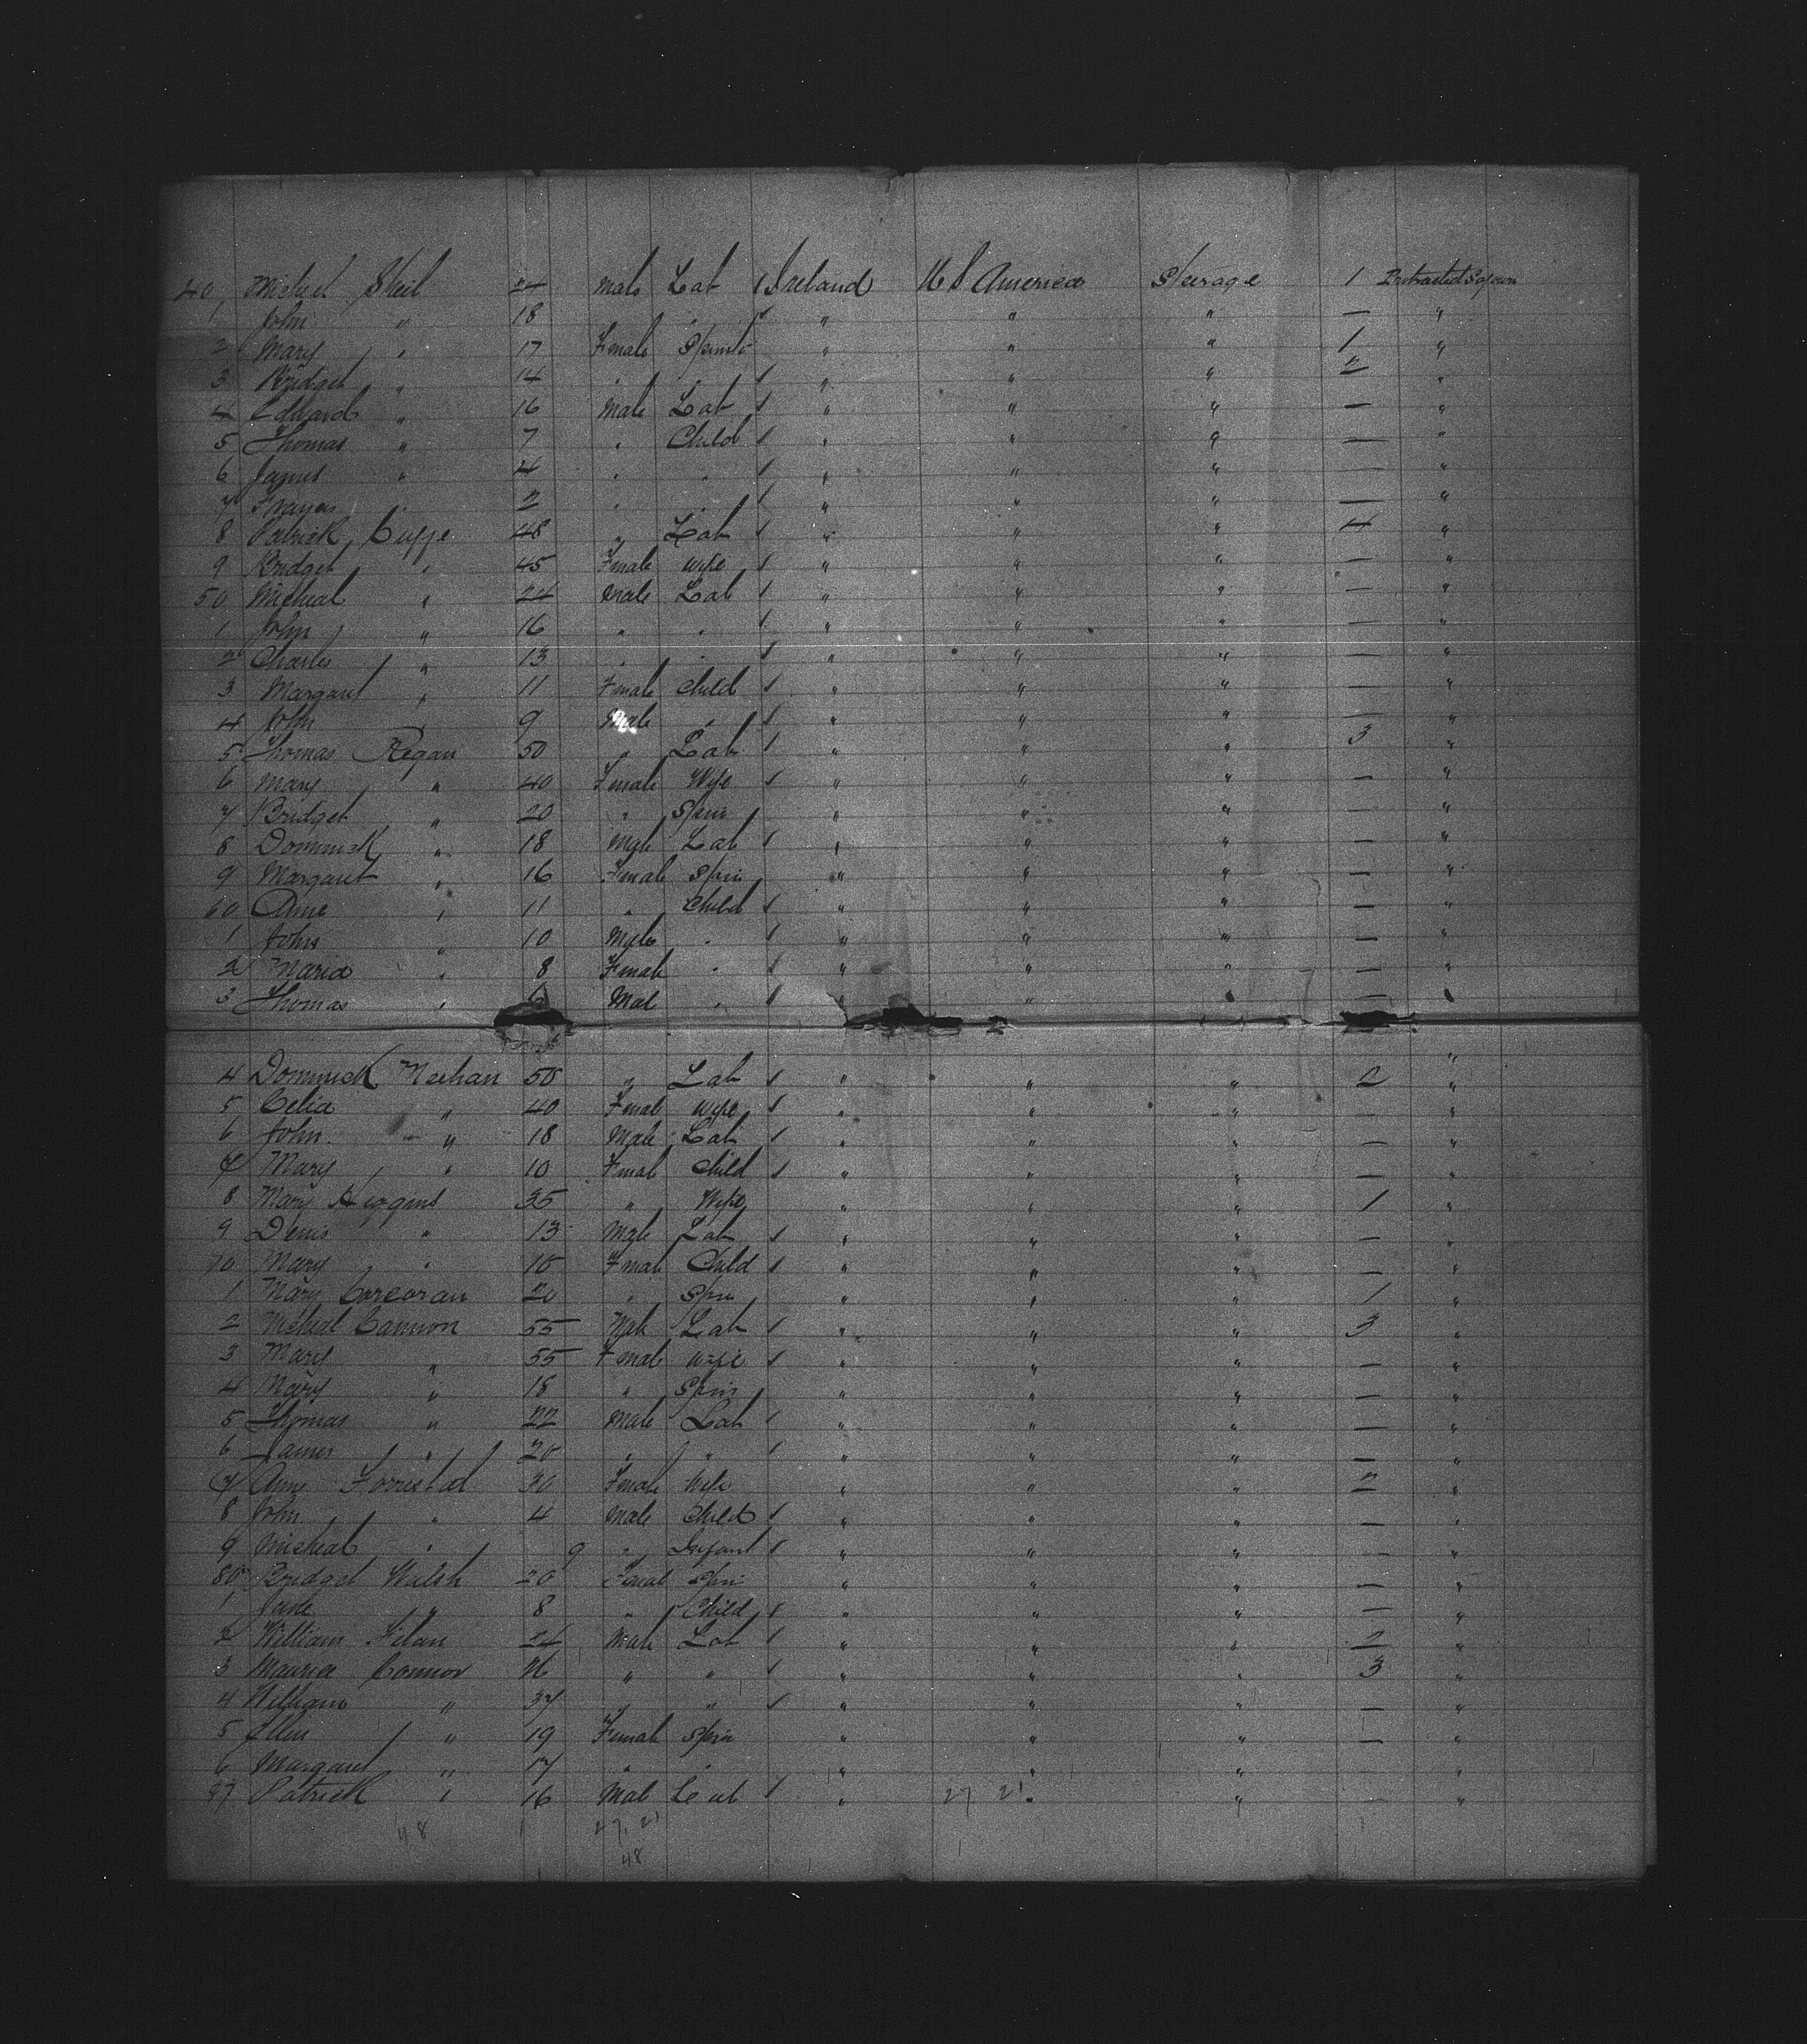 40 Michel Sheil 24 Male Lab 1 Ireland U S America Steerage 1 Protracted Sojourn
1 John " 18 " " 1 " " " — "
2 Mary " 17 Female Spinst " " " 1 "
3 Bridget " 14 " " 1 " " " 2 "
4 Edward " 16 Male Lab 1 " " " — "
5 Thomas " 7 " Child 1 " " " — "
6 James " 4 " " 1 " " " — "
7 " 2 " " 1 " " " — "
8 Patrick Cuffe 48 " Lab 1 " " " 4 "
9 Bridget " 45 Female Wife 1 " " " — "
50 Micheal " 24 Male Lab 1 " " " — "
1 John " 16 " " 1 " " " — "
2 Charles " 13 " " 1 " " " — "
3 Margaret " 11 Female Child 1 " " " — "
4 John " 9 Male " 1 " " " — "
5 Thomas Regan 50 " Lab 1 " " " 3 "
6 Mary " 40 Female Wife 1 " " " — "
7 Bridget " 20 " Spin " " " — "
8 Dominick " 18 Male Lab 1 " " " — "
9 Margaret " 16 Female Spin " " " — "
60 Anne " 11 " Child 1 " " " — "
1 John " 10 Male " 1 " " " — "
2 Maria " 8 Female " 1 " " " — "
3 Thomas " 6 Male " 1 " " " — "
4 Dominick Meehan 50 " Lab 1 " " " 2 "
5 Celia " 40 Female Wife 1 " " " — "
6 John " 18 Male Lab 1 " " " — "
7 Mary " 10 Female Child 1 " " " — "
8 Mary Higgins 35 " Wife " " " 1 "
9 Denis " 13 Male Lab 1 " " " — "
70 Mary " 10 Female Child 1 " " " — "
1 Mary Corcoran 20 " Spin " " " 1 "
2 Micheal Cannon 55 Male Lab 1 " " " 3 "
3 Mary " 55 Female Wife 1 " " " — "
4 Mary " 18 " Spin " " " — "
5 Thomas " 22 Male Lab 1 " " " — "
6 James " 20 " " 1 " " " — "
7 Ann Forrestal 30 Female Wife " " " 2 "
8 John " 4 Male Child 1 " " " — "
9 Micheal " 9 " Infant 1 " " " — "
80 Bridget Walsh 20 Female Spin " " " — "
1 " 8 " Child 1 " " " — "
2 William Filan 24 Male Lab 1 " " " 2 "
3 Maurice Connor " " 1 " " " 3 "
4 William " 37 " " 1 " " " — "
5 Ellen " 19 Female Spin " " " — "
6 Margaret " 17 " " " " " — "
87 Patrick " 16 Male Lab 1 " 27 21 " " — "
48 27, 21
48